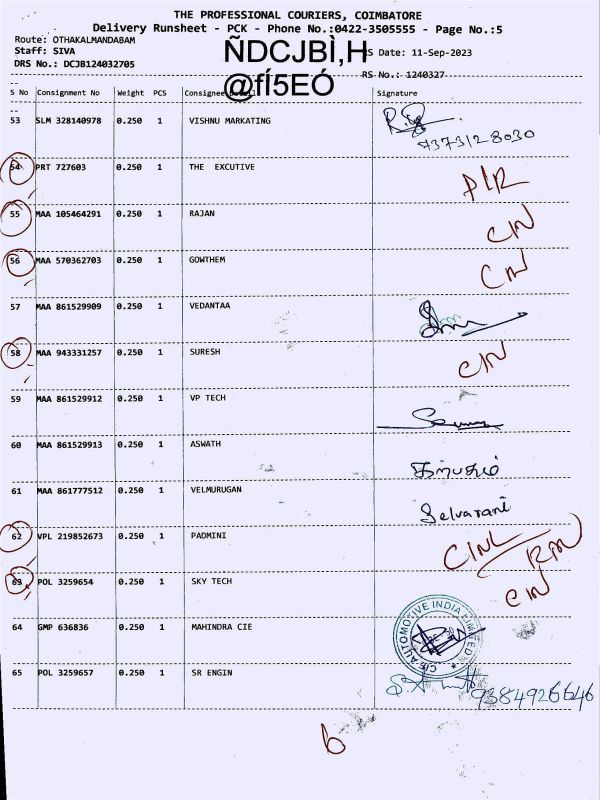 THE PROFESSIONAL COURIERS, COIMBATORE
Delivery Runsheet - PCK - Phone No.:0422-3505555 - Page No.:5
Route: OTHAKALMANDABAM
Staff: SIVA
DRS No.: DCJB124032705
ÑDCJBÌ,H
@fÍ5EÓ
RS Date: 11-Sep-2023
RS No.: 1240327
S No Consignment No Weight PCS Consignee Signature
53 SLM 328140978 0.250 1 VISHNU MARKATING
9373128030
54 PRT 727603 0.250 1 THE EXCUTIVE
55 MAA 105464291 0.250 1 RAJAN CIN
56 MAA 570362703 0.250 1 GOWTHEM CIN
57 MAA 861529909 0.250 1 VEDANTAA
58 MAA 943331257 0.250 1 SURESH CIN
59 MAA 861529912 0.250 1 VP TECH
60 MAA 861529913 0.250 1 ASWATH
61 MAA 861777512 0.250 1 VELMURUGAN Selvarani
62 VPL 219852673 0.250 1 PADMINI
63 POL 3259654 0.250 1 SKY TECH CIN
64 GMP 636836 0.250 1 MAHINDRA CIE CIE AUTOMOTIVE INDIA LIMITED
65 POL 3259657 0.250 1 SR ENGIN 9384926646
6